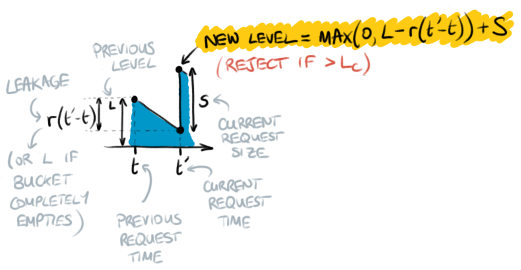 NEW LEVEL = MAX(0, L-r(t'-t)) + S
(REJECT IF > Lc)
PREVIOUS
LEVEL
LEAKAGE
r(t'-t)
L
S
(OR L IF
BUCKET
COMPLETELY
EMPTIES)
CURRENT
REQUEST
SIZE
t
t'
PREVIOUS
REQUEST
TIME
CURRENT
REQUEST
TIME